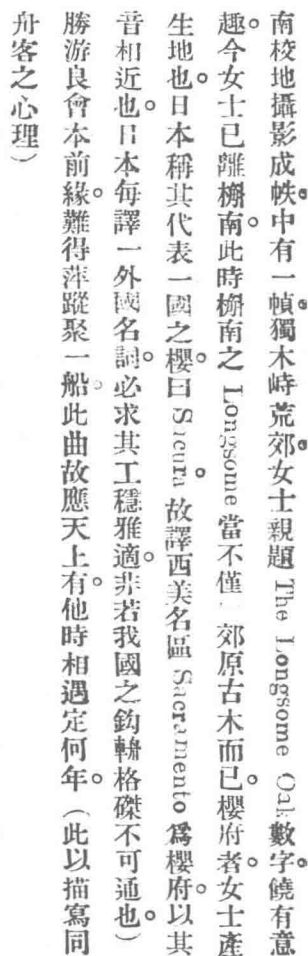 南校地攝影成帙。中有一幀。獨木峙荒郊。女士親題 The Longsome Oak 數字。饒有意
趣。今女士已離榭南。此時榭南之 Longsome 當不僅一郊原古木而已。櫻府者女士產
生地也。日本稱其代表一國之櫻曰 Sacura。故譯西美名區 Sacramento 爲櫻府。以其
音相近也。日本每譯一外國名詞。必求其工穩雅適。非若我國之鈎輈格磔不可通也。）
勝游良會本前緣。難得萍蹤聚一船。此曲故應天上有。他時相遇定何年。（此以描寫同
舟客之心理）